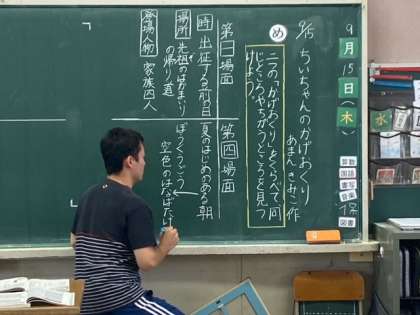 9月15日(木)
算数
国語
書写
音楽
図書
保
水
9/15 ちいちゃんのかげおくり
あまんきみこ作
め
二つの「かげおくり」をくらべて、同
じところやちがうところを見つ
けよう。
第一場面
第四場面
時 出征する前の日
夏のはじめのある朝
場所 先祖のはかまいり
の帰り道
ぼうくうごう
空色のはなばたけ
登場人物 家族四人